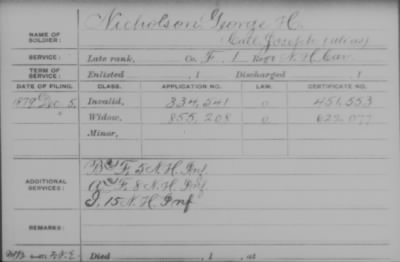 NAME OF SOLDIER: Nicholson George H.
Call Joseph (alias)
SERVICE: Late rank, Co. F. 1 Reg't N.H. Cav.
TERM OF SERVICE: Enlisted , 1 Discharged , 1
DATE OF FILING. CLASS. APPLICATION NO. LAW. CERTIFICATE NO.
1879 Dec. 5. Invalid, 334,241 0 451,553
Widow, 855,208 0 622,077
Minor,
ADDITIONAL SERVICES:
F. 5 N.H. Inf.
F. 8 N.H. Inf.
I. 15 N.H. Inf
REMARKS:
Died , 1 , at